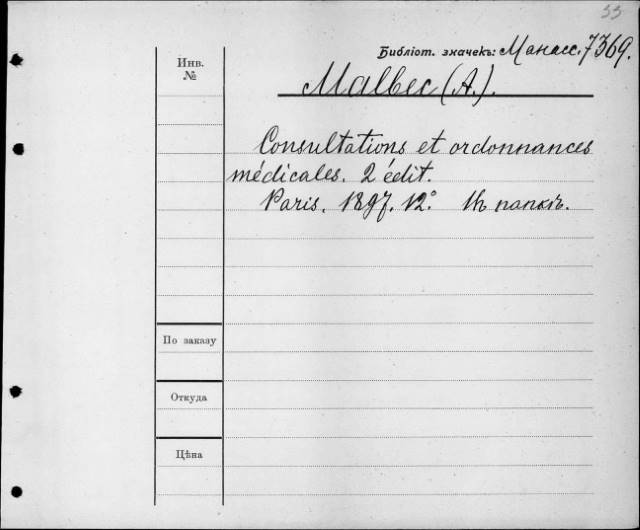 33
Библіот. значекъ: Манасс. 7369.
Инв.
№
Malbec (A.).
Consultations et ordonnances
médicales. 2 édit.
Paris. 1897. 12°. въ папкѣ.
По заказу
Откуда
Цѣна